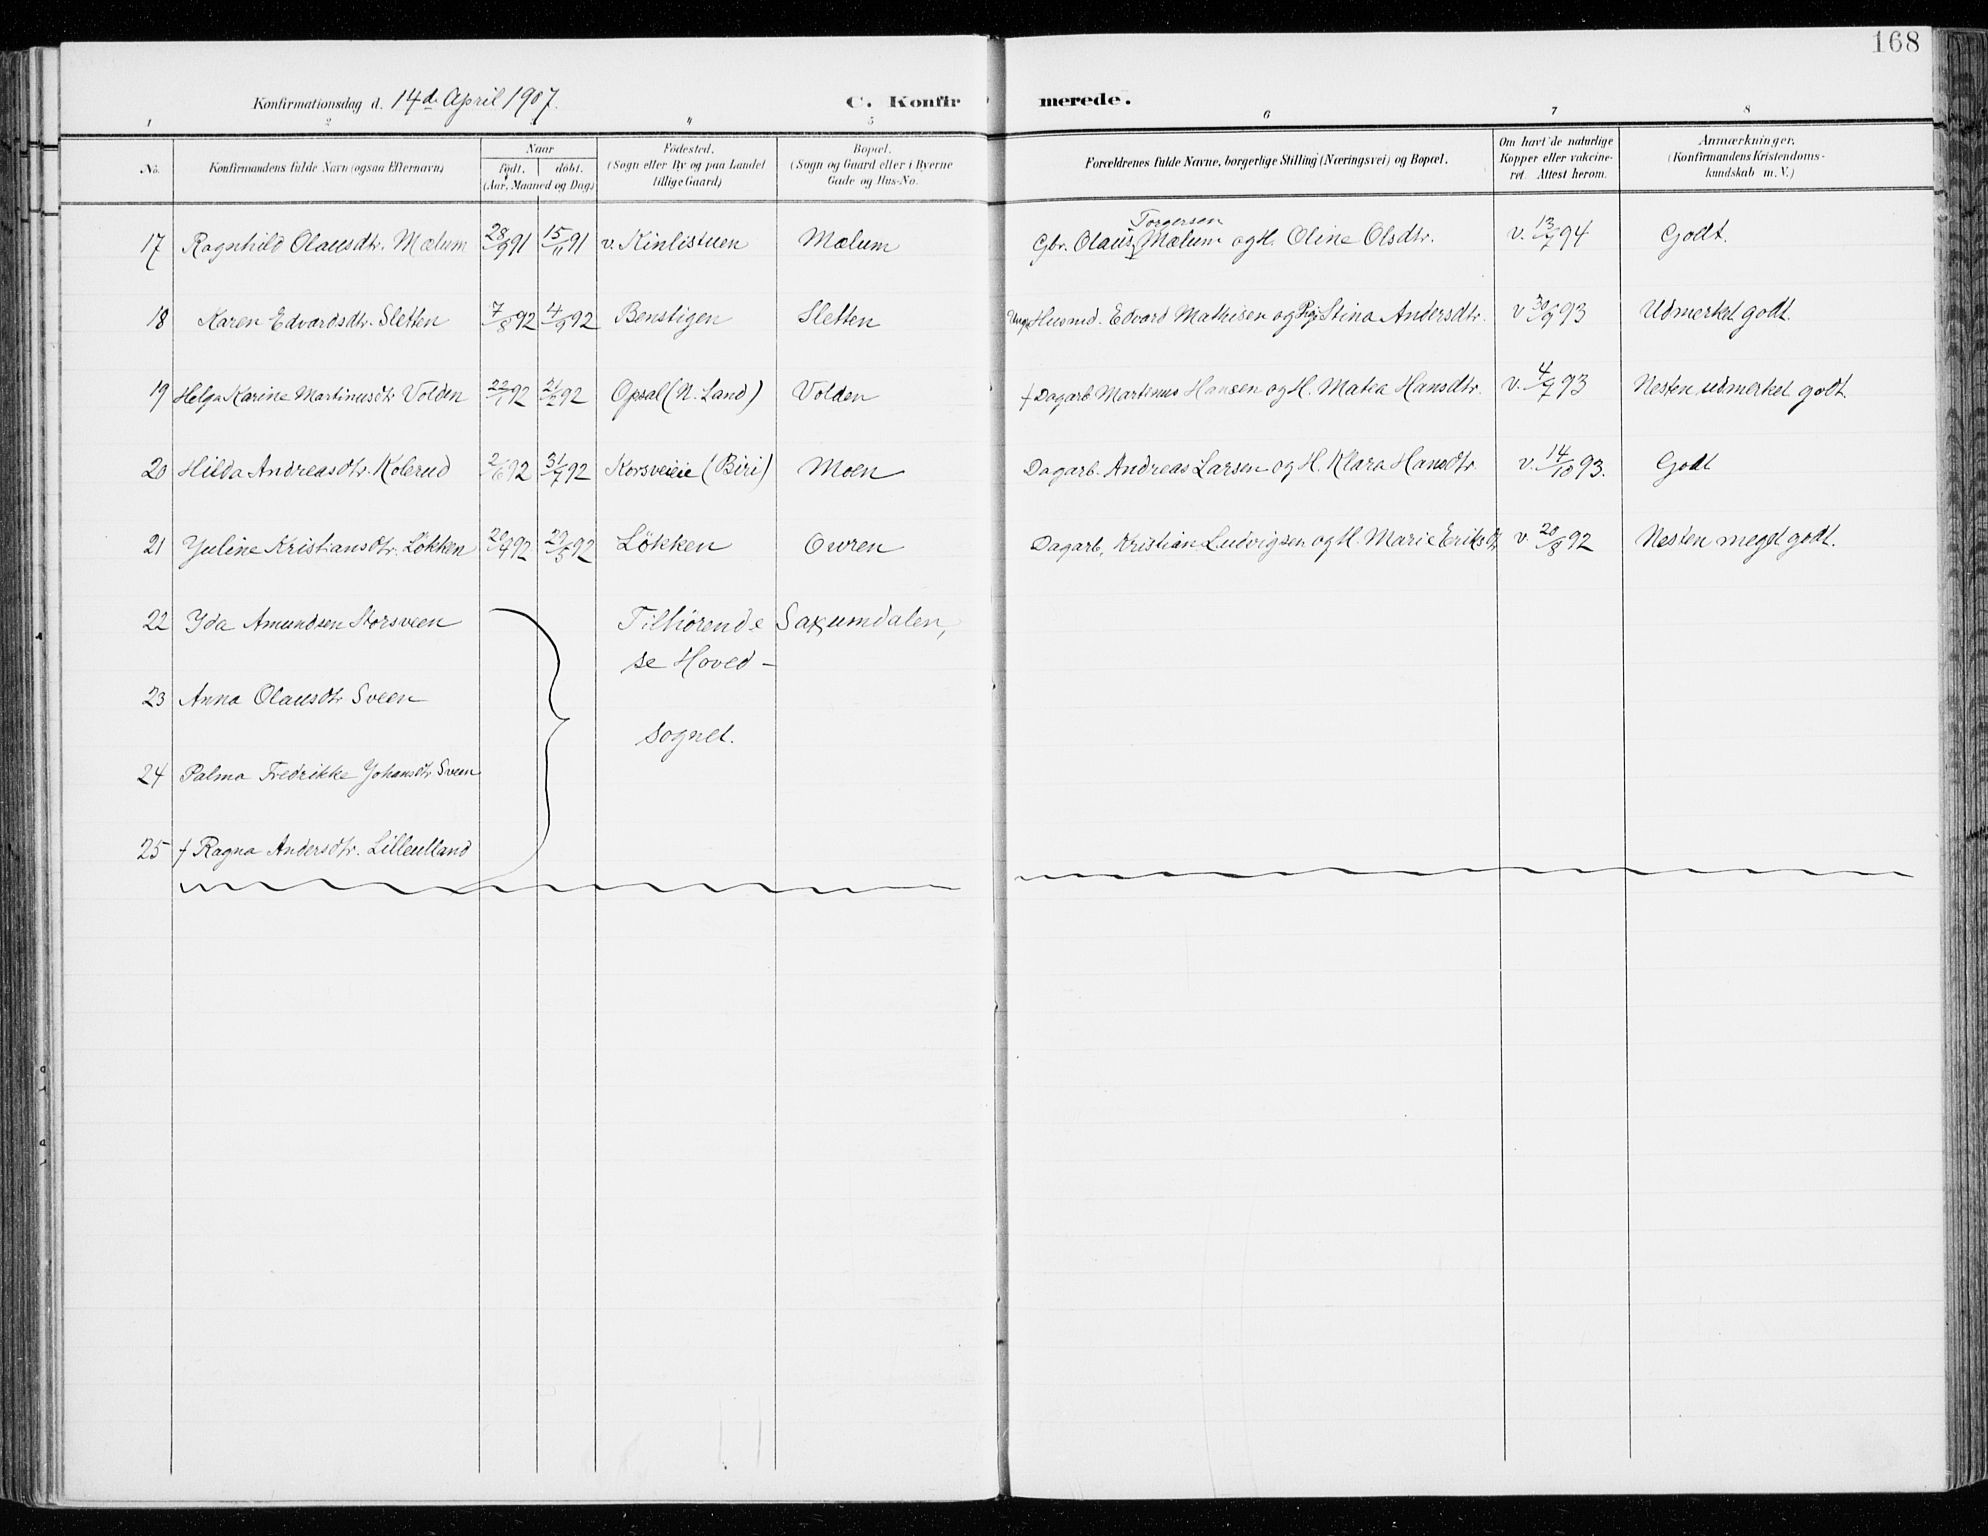 168
Konfirmationsdag d. 14de April 1907.
C. Konfirmerede.
1 2 3 4 5 6 7 8
No. Konfirmandens fulde Navn (ogsaa Efternavn) Naar født. døbt. (Aar, Maaned og Dag) Fødested. (Sogn eller By og paa Landet tillige Gaard) Bopæl. (Sogn og Gaard eller i Byerne Gade og Hus-No. Forældrenes fulde Navne, borgerlige Stilling (Næringsvei) og Bopæl. Om havt de naturlige Kopper eller vakcineret. Attest herom. Anmærkninger. (Konfirmandens Kristendomskundskab m. V.)
17 Ragnhild Olausdtr. Mælum 28/9 91 15/11 91 v. Kinlistuen Mælum Gbr. Olaus Torgersen Mælum og H. Oline Olsdtr. v. 13/7 94 Godt.
18 Karen Edvardsdtr. Sletten 7/8 92 4/9 92 Benstigen Sletten Ungk. Husmd. Edvard Mathisen og Pige Stina Andersdtr. v 30/9 93 Udmerket godt.
19 Helga Karine Martinusdtr Volden 22/1 92 21/2 92 Opsal (N. Land) Volden † Dagarb Martinus Hansen og H. Matea Hansdtr. v. 4/7 93 Nesten udmerket godt
20 Hilda Andreasdtr. Kolerud 2/6 92 31/7 92 Korsveieie (Biri) Moen Dagarb. Andreas Larsen og H. Klara Hansdtr v. 14/10 93. Godt
21 Juline Kristiansdtr. Løkken 20/4 92 29/5 92 Løkken Owren Dagarb. Kristian Ludvigsen og H. Marie Eriksdtr v. 20/8 92 Nesten meget godt.
22 Ida Amundsen Storsveen Tilhørende Saxumdalen,
se Hoved-
23 Anna Olausdtr Sveen
sognet.
24 Palma Fredrikke Johansdtr Sveen
25 † Ragna Andersdtr. Lilleulland